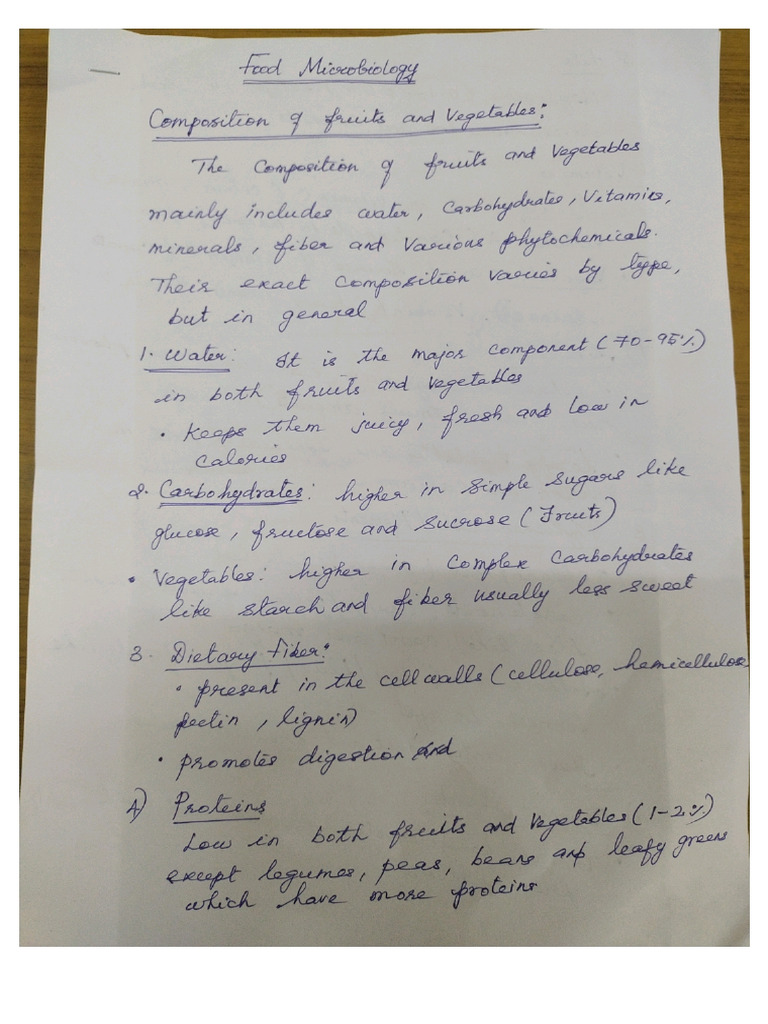 Food Microbiology
Composition of fruits and Vegetables:
The Composition of fruits and Vegetables
mainly includes water, Carbohydrates, Vitamins,
minerals, fiber and Various phytochemicals.
Their exact Composition varies by type,
but in general
1. Water: It is the major component (70-95%)
in both fruits and Vegetables
• Keeps them juicy, fresh and low in
calories
2. Carbohydrates: higher in simple sugars like
glucose, fructose and sucrose (Fruits)
• Vegetables: higher in Complex Carbohydrates
like starch and fiber usually less sweet
3. Dietary Fiber:
• present in the cell walls (cellulose, hemicellulose
pectin, lignin)
• promotes digestion and
4) Proteins
Low in both fruits and Vegetables (1-2%)
except legumes, peas, beans and leafy greens
which have more proteins